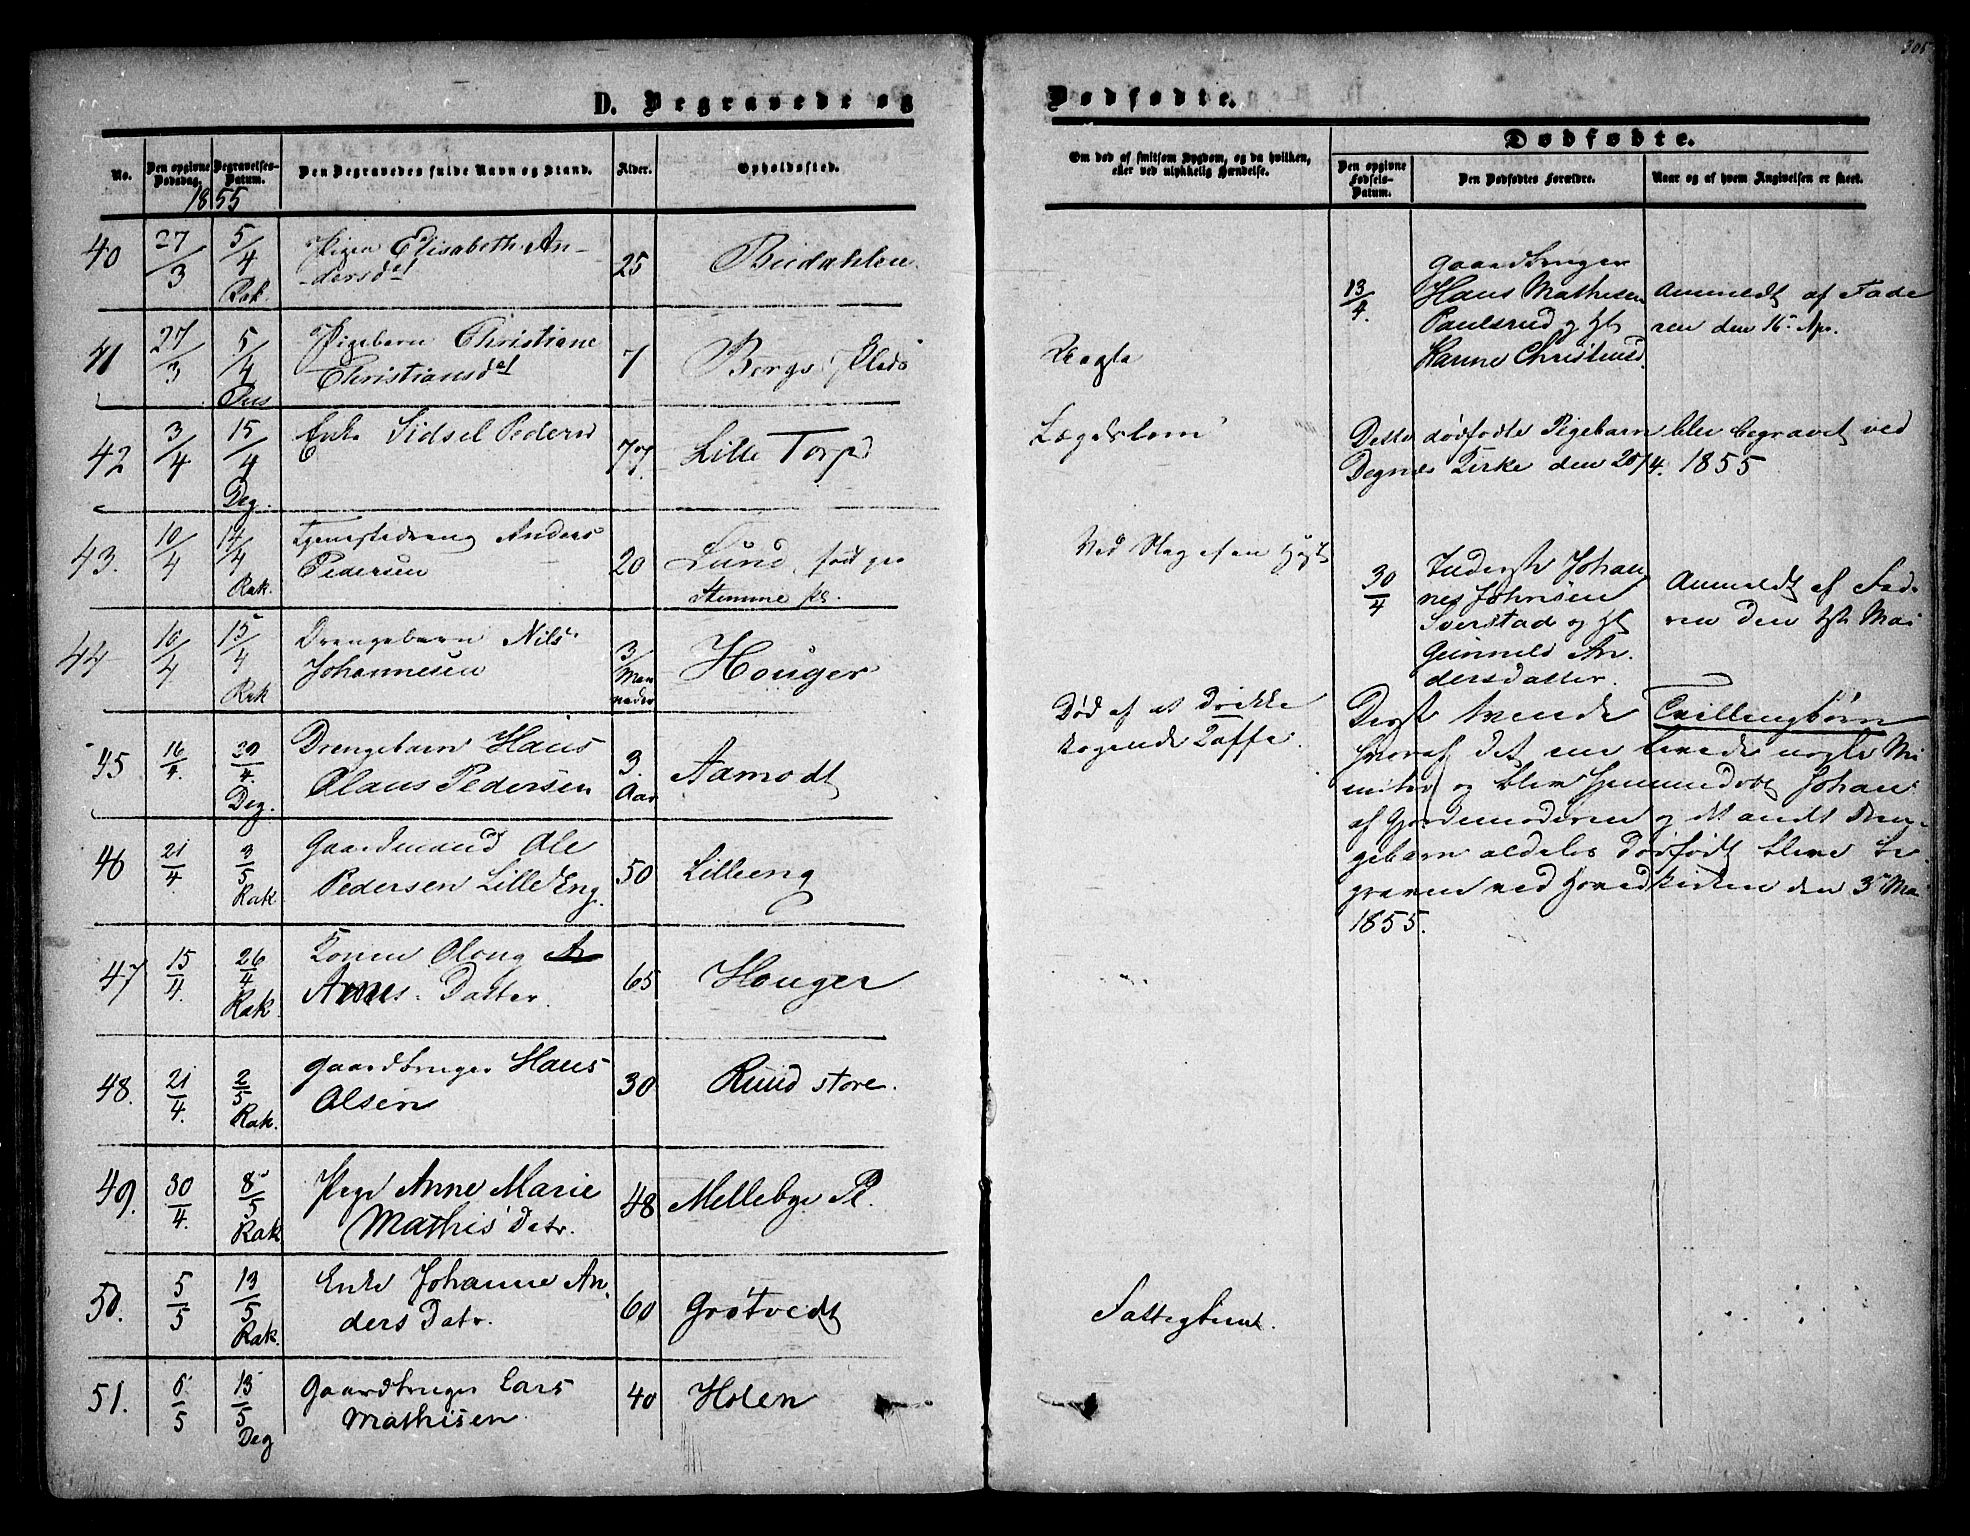 305
D. Begravede og
Dødfødte.
No.
Den opgivne Dødsdag.
Begravelses-Datum.
Den Begravedes fulde Navn og Stand.
Alder.
Opholdssted.
1855
40 27/3 5/4 Rak. Pigen Elisabeth An-
dersdat 25
41 27/3 5/4 Pigebarn Christiane
Christiansdat 7 Bergs Plads
42 3/4 15/4 Deg. Enke Sidsel Peders 77. Lille Torp
43. 10/4 14/4 Rak. Tjenestedreng Anders
Pedersen 20 Lund, født paa
Stemme
44 10/4 15/4 Rak Drengebarn Nils
Johannesen 3/Maa
neder Houger
45 16/4. 30/4. Deg. Drengebarn Hans
Olaus Pedersen 3. Aar Aamodt
46 21/4 3/5 Rak Gaardmand Ole
Pedersen Lille Eng. 50 Lilleeng
47 15/4. 26/4 Rak. Konen Oloug An
Arnes Datter. 65 Houger
48. 21/4. 2/5 Rak. Gaardbruger Hans
Olsen 30 Ruud store.
49. 30/4. 8/5 Rak Pige Anne Marie
Mathis Datr. 48 Mellebye Pl.
50. 5/5 13/5 Rak Enke Johanne An-
ders Datr. 60 Grøtvedt
51. 6/5 13/5 Deg Gaardbruger Lars
Mathisen 40 Holen
Om død af smitsom Sygdom, og da hvilken,
eller ved ulykkelig Hændelse.
Dødfødte.
Den opgivne Fødsels-Datum.
Den Dødfødtes Forældre.
Naar og af hvem Angivelsen er skeet.
Lægdslem
Ved Slag af en Hest
Død af at drikke
kogende Kaffe.
Fattiglem.
13/4. Gaardbruger
Hans Mathisen
Paulsrud og H
Karine Christensd.
Anmeldt af Fade
ren den 16 Apr.
Dette dødfødte Pigebarn blev begravet ved
Degnes Kirke den 20/4. 1855
30/4 Inderst Johan
nes Johnsen
Sverstad og H
Gunnild An
dersdatter.
Anmeldt af Fad-
eren den 1st Mai
Derst tvende Tvillingbørn
hvoraf det ene levede nogle Mi
nuter og blev hjemmedøbt Johan
af Gjordemoderen og det andet Dren-
gebarn aldeles dødfødt bleve be-
graven ved Hovedkirken den 3 Mai
1855.